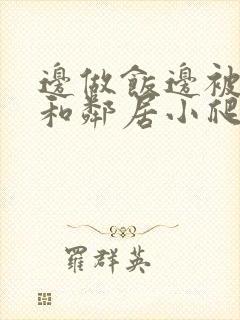 邊做飯邊被
和鄰居小爬
羅群英